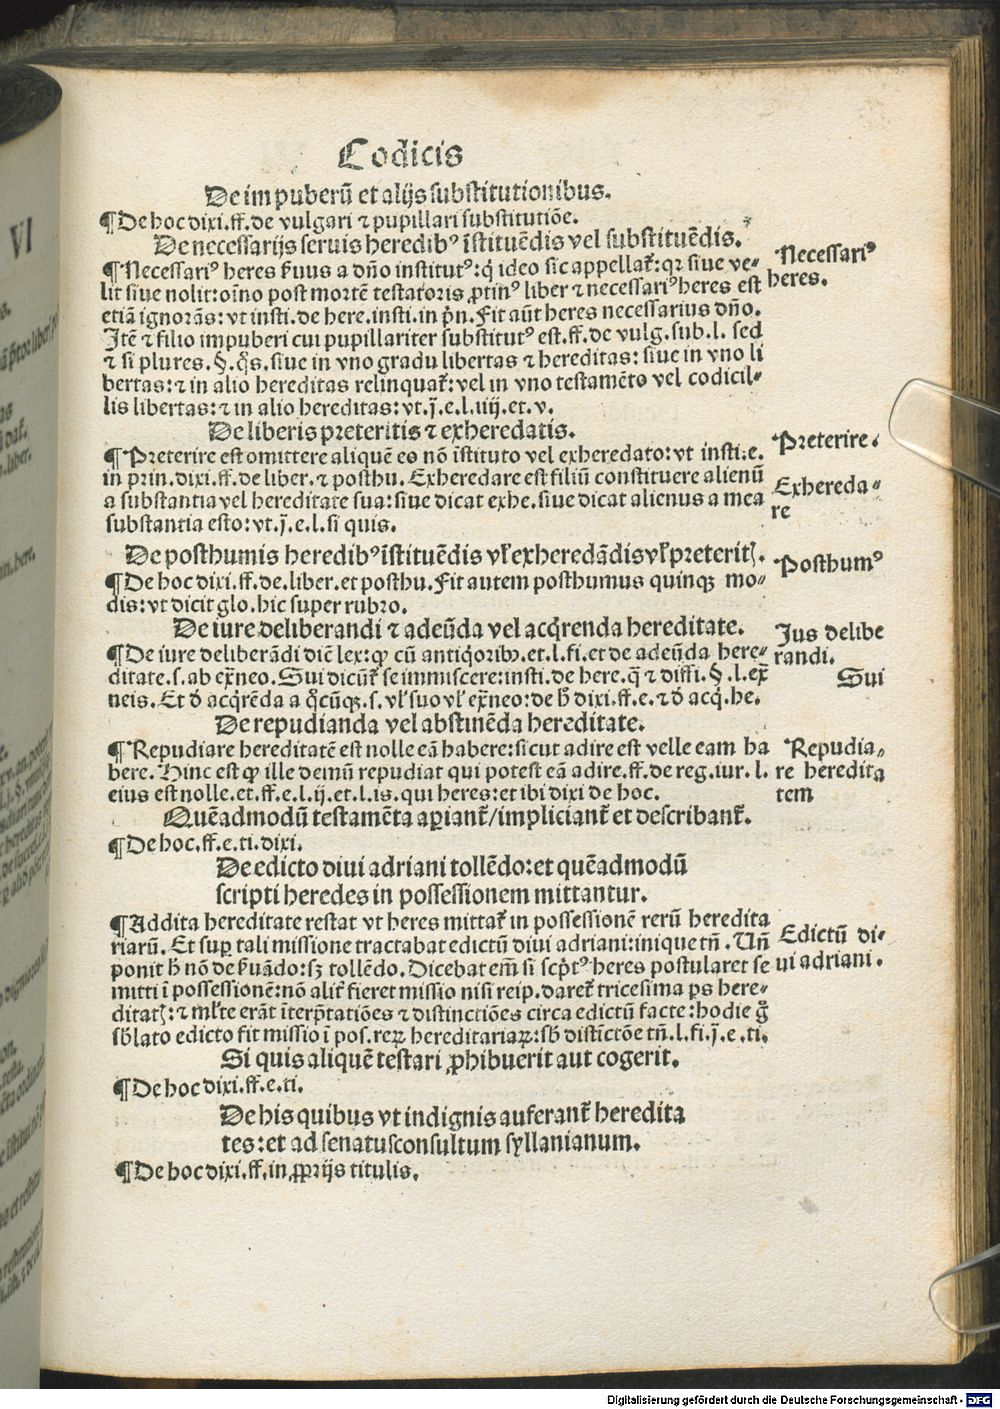 Codicis
De impuberū et alijs substitutionibus.
¶De hoc dixi.ff.de vulgari ⁊ pupillari substitutiōe.
De necessarijs seruis heredibꝰ īstituēdis vel substituēdis.
¶Necessariꝰ heres ẜuus a dño institutꝰ:q̇ ideo sic appellat̄:qꝛ siue ve⸗
lit siue nolit:oīno post mortē testatoris ꝓtinꝰ liber ⁊ necessariꝰ heres est
etiā ignorās:vt insti.de here.insti.in pn̄. Fit aūt heres necessarius dño.
Itē ⁊ filio impuberi cui pupillariter substitutꝰ est.ff.de vulg.sub.l. sed
⁊ si plures.§.q̇s.siue in vno gradu libertas ⁊ hereditas: siue in vno li
bertas:⁊ in alio hereditas relinquat̄:vel in vno testamēto vel codicil⸗
lis libertas:⁊ in alio hereditas:vt.j̄.e.l.iiij.et.v.
Necessariꝰ
heres.
De liberis preteritis ⁊ exheredatis.
¶Preterire est omittere aliquē eo nō īstituto vel exheredato:vt insti:e.
in prin.dixi.ff.de liber.⁊ posthu. Exheredare est filiū constituere alienū
a substantia vel hereditate sua:siue dicat exhe.siue dicat alienus a mea
substantia esto:vt.j̄.e.l.si quis.
Preterire.
Exhereda⸗
re
De posthumis heredibꝰ īstituēdis vl̄ exheredādis vl̄ preteritꝭ.
¶De hoc dixi.ff.de.liber.et posthu. Fit autem posthumus quinqꝫ mo⸗
dis:vt dicit glo.hic super rubro.
Posthumꝰ
De iure deliberandi ⁊ adeūda vel acq̇renda hereditate.
¶De iure deliberādi dic̄ lex:ꝙ cū antiq̇oribꝰ.et.l.fi.et de adeūda here⸗
ditate.s.ab ex̄neo. Sui dicūt̄ se immiscere:insti.de here.q̄ ⁊ diffi.§.l.ex̄
neis. Et ꝺ̄ acq̇rēda a q̇cūqꝫ.s.vl̄ suo vl̄ ex̄neo:de ħ dixi.ff.e.⁊ ꝺ̄ acq̇.he.
Ius delibe
randi.
Sui
De repudianda vel abstinēda hereditate.
¶Repudiare hereditatē est nolle eā habere:sicut adire est velle eam ha
bere. Hinc est ꝙ ille demū repudiat qui potest eā adire.ff.de reg.iur.l.
eius est nolle.et.ff.e.l.ij.et.l.is.qui heres:et ibi dixi de hoc.
Repudia⸗
re heredita
tem
Quēadmodū testamēta aꝑiant̄/impliciant̄ et describant̄.
¶De hoc.ff.e.ti.dixi.
De edicto diui adriani tollēdo:et quēadmodū
scripti heredes in possessionem mittantur.
¶Addita hereditate restat vt heres mittat̄ in possessionē rerū heredita
riarū. Et suꝑ tali missione tractabat edictū diui adriani:inique tn̄. Un̄
ponit ħ nō de ẜuādo:sꝫ tollēdo. Dicebat em̄ si scp̄tꝰ heres postularet se
mitti ī possessionē:nō alit̄ fieret missio nisi reip.daret̄ tricesima ꝑs here⸗
ditatꝭ:⁊ ml̄te erāt īterp̄tatiōes ⁊ distinctiōes circa edictū facte:hodie g̊
sb̄lato edicto fit missio ī pos.reꝝ hereditariaꝝ:sb̄ distīctōe tn̄.l.fi.j̄.e.ti.
Edictū di⸗
ui adriani.
Si quis aliquē testari ꝓhibuerit aut cogerit.
¶De hoc dixi.ff.e.ti.
De his quibus vt indignis auferant̄ heredita
tes:et ad senatusconsultum syllanianum.
¶De hoc dixi.ff.in ꝓprijs titulis.
VI
Digitalisierung gefördert durch die Deutsche Forschungsgemeinschaft - DFG